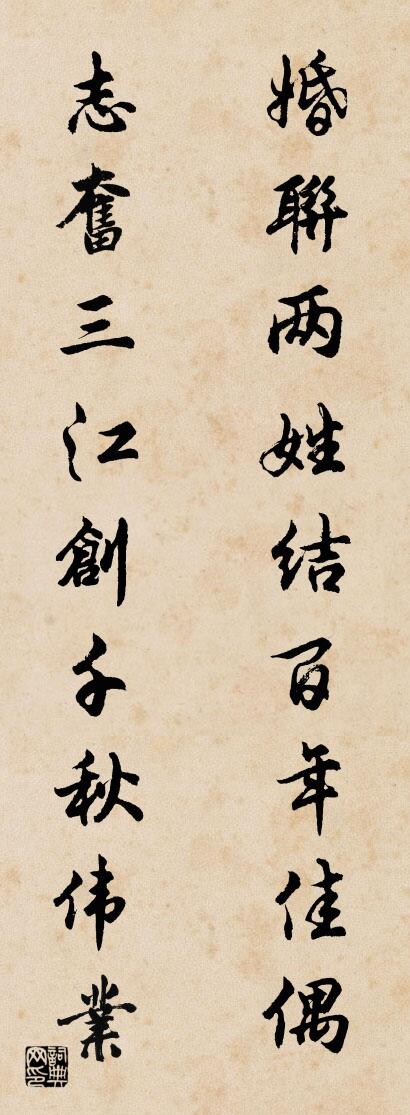 婚聯两姓结百年佳偶
志奮三江創千秋伟業
詞典网印